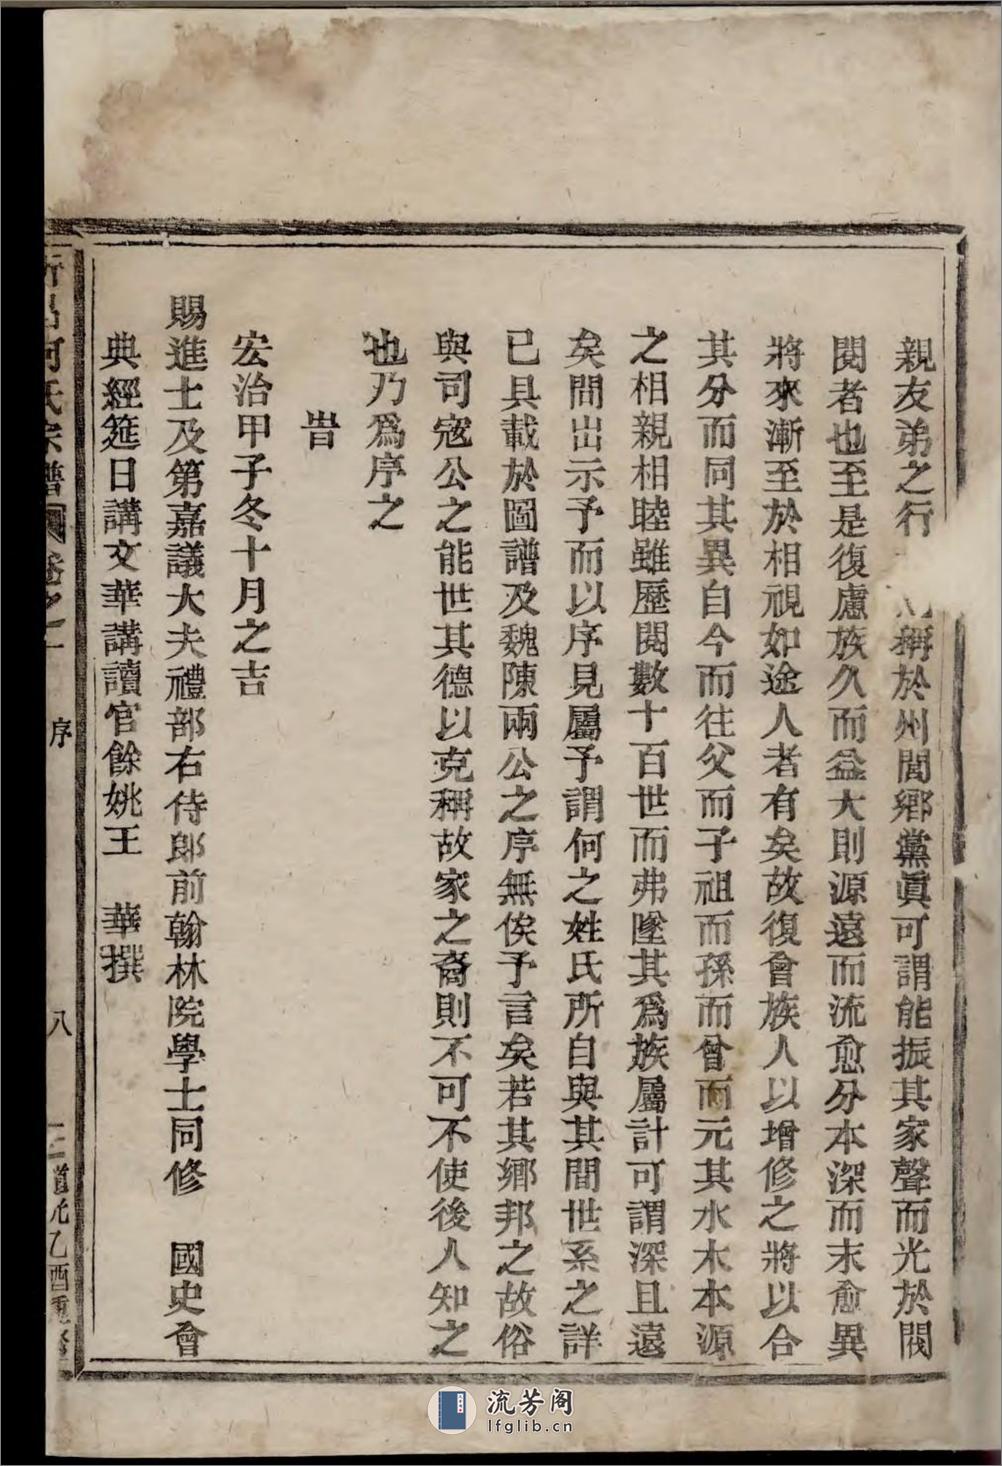 親友弟之行 稱於州閭鄉黨眞可謂能振其家聲而光於閥
閱者也至是復慮族久而益大則源遠而流愈分本深而末愈異
將來漸至於相視如途人者有矣故復會族人以增修之將以合
其分而同其異自今而往父而子祖而孫而曾而元其水木本源
之相親相睦雖歷閱數十百世而弗墜其爲族屬計可謂深且遠
矣間出示予而以序見屬予謂何之姓氏所自與其間世系之詳
已具載於圖譜及魏陳兩公之序無俟予言矣若其鄉邦之故俗
與司寇公之能世其德以克稱故家之裔則不可不使後人知之
也乃爲序之
旹
宏治甲子冬十月之吉
賜進士及第嘉議大夫禮部右侍郎前翰林院學士同修 國史會
典經筵日講文華講讀官餘姚王 華撰
何氏宗譜 卷之一 序 八 道光乙酉重修
流芳阁
lfglib.cn